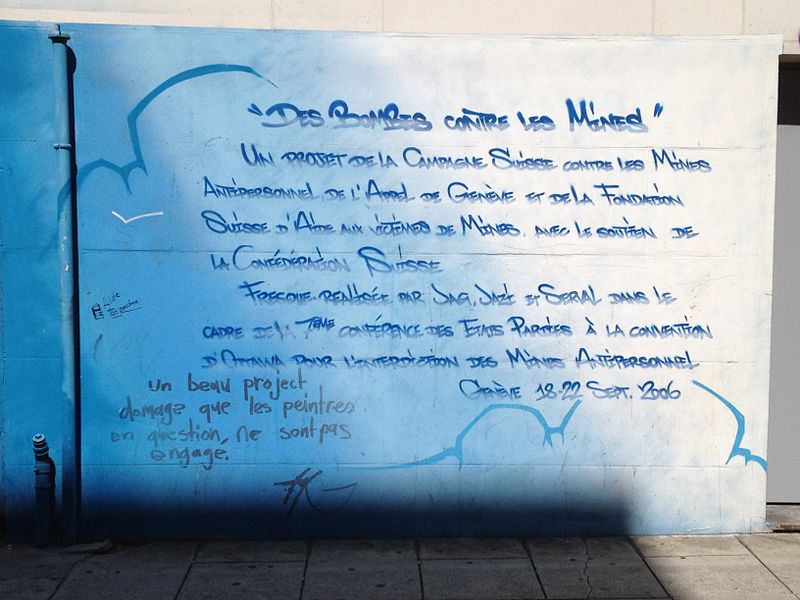 "Des Bombes contre les Mines"
Un projet de la Campagne Suisse contre les Mines
Antipersonnel, de l'Appel de Genève et de la Fondation
Suisse d'Aide aux victimes de Mines, avec le soutien de
la Confédération Suisse
Fresque réalisée par Jag, Jazi et Serial dans le
cadre de la 7ème conférence des Etats Parties à la convention
d'Ottawa pour l'interdiction des Mines Antipersonnel
Genève 18-22 Sept. 2006
un beau project
domage que les peintres
en question, ne sont pas
engage.